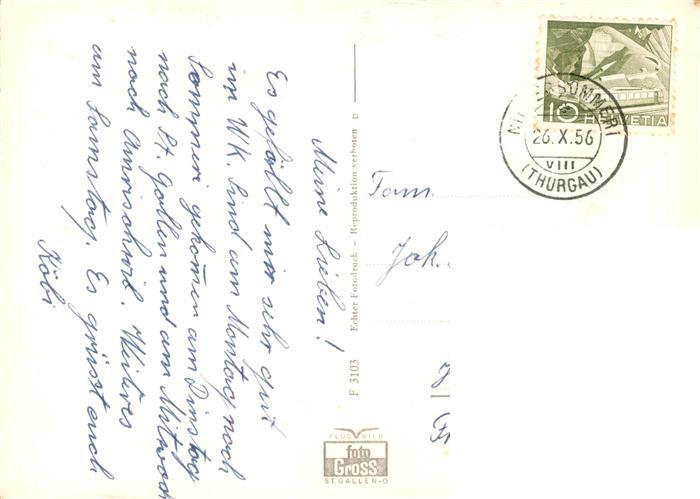 Meine Lieben!
Es gefällt mir sehr gut
im WK. Sind am Montag nach
Sommeri gekomen am Dinstag
nach St. Gallen und am Mitwoch
nach Amrischwil. Weiteres
am Samstag. Es grüsst euch
Köbi
F 3103 Echter Fotodruck — Reproduktion verboten p
FLUG BILD
foto
Gross
ST. GALLEN-O
10 HELVETIA
SOMMERI
26.X.56
VIII
(THURGAU)
Fam.
Joh.